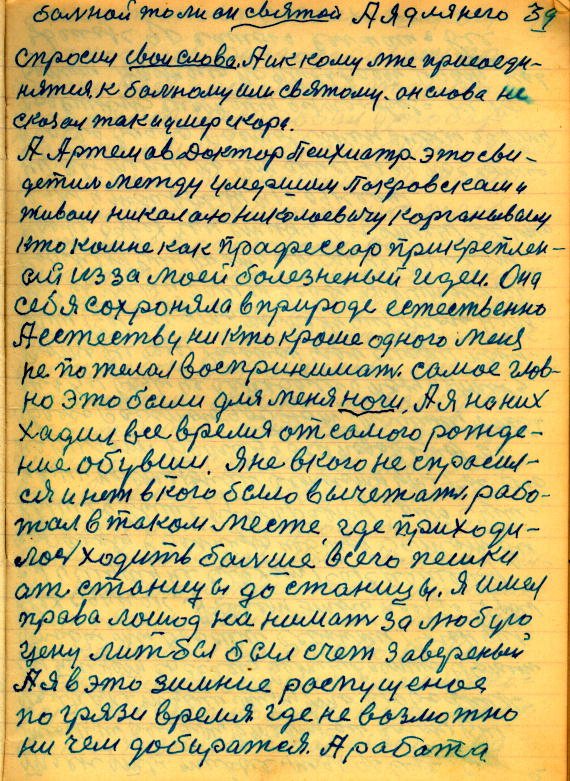 болной то ли он святой А я для него 39
спросил свои слова. А ик кому мне присоеди-
нятся. к болному или святому. он слова не
сказал так и умер скоро.
А Артемов Доктор Психиатр. это сви-
детил между умершим Покровским и
живом николаю николаевичу коргановым
кто ко мне как профессор прикреплен-
ай из за моей болезненый идеи. Она
себя сохроняла в природе естественно
А естеству никто кроме одного меня
не пожелал воспринимат. самое глов-
но это были для меня ноги. А я на них
хадил все время от самого рожде-
ние обувши. Я не в кого не спросил-
ся и нет в кого было вычетат. рабо-
тал в таком месте, где приходи-
лос ходить болше всего пешки
ат станицы до станицы. Я имел
права лошод на нимат за любую
цену лит бы был счет заверёный
А я в это зимние роспущеное
по грязи время. где не возможно
ни чем добиратся. А работа